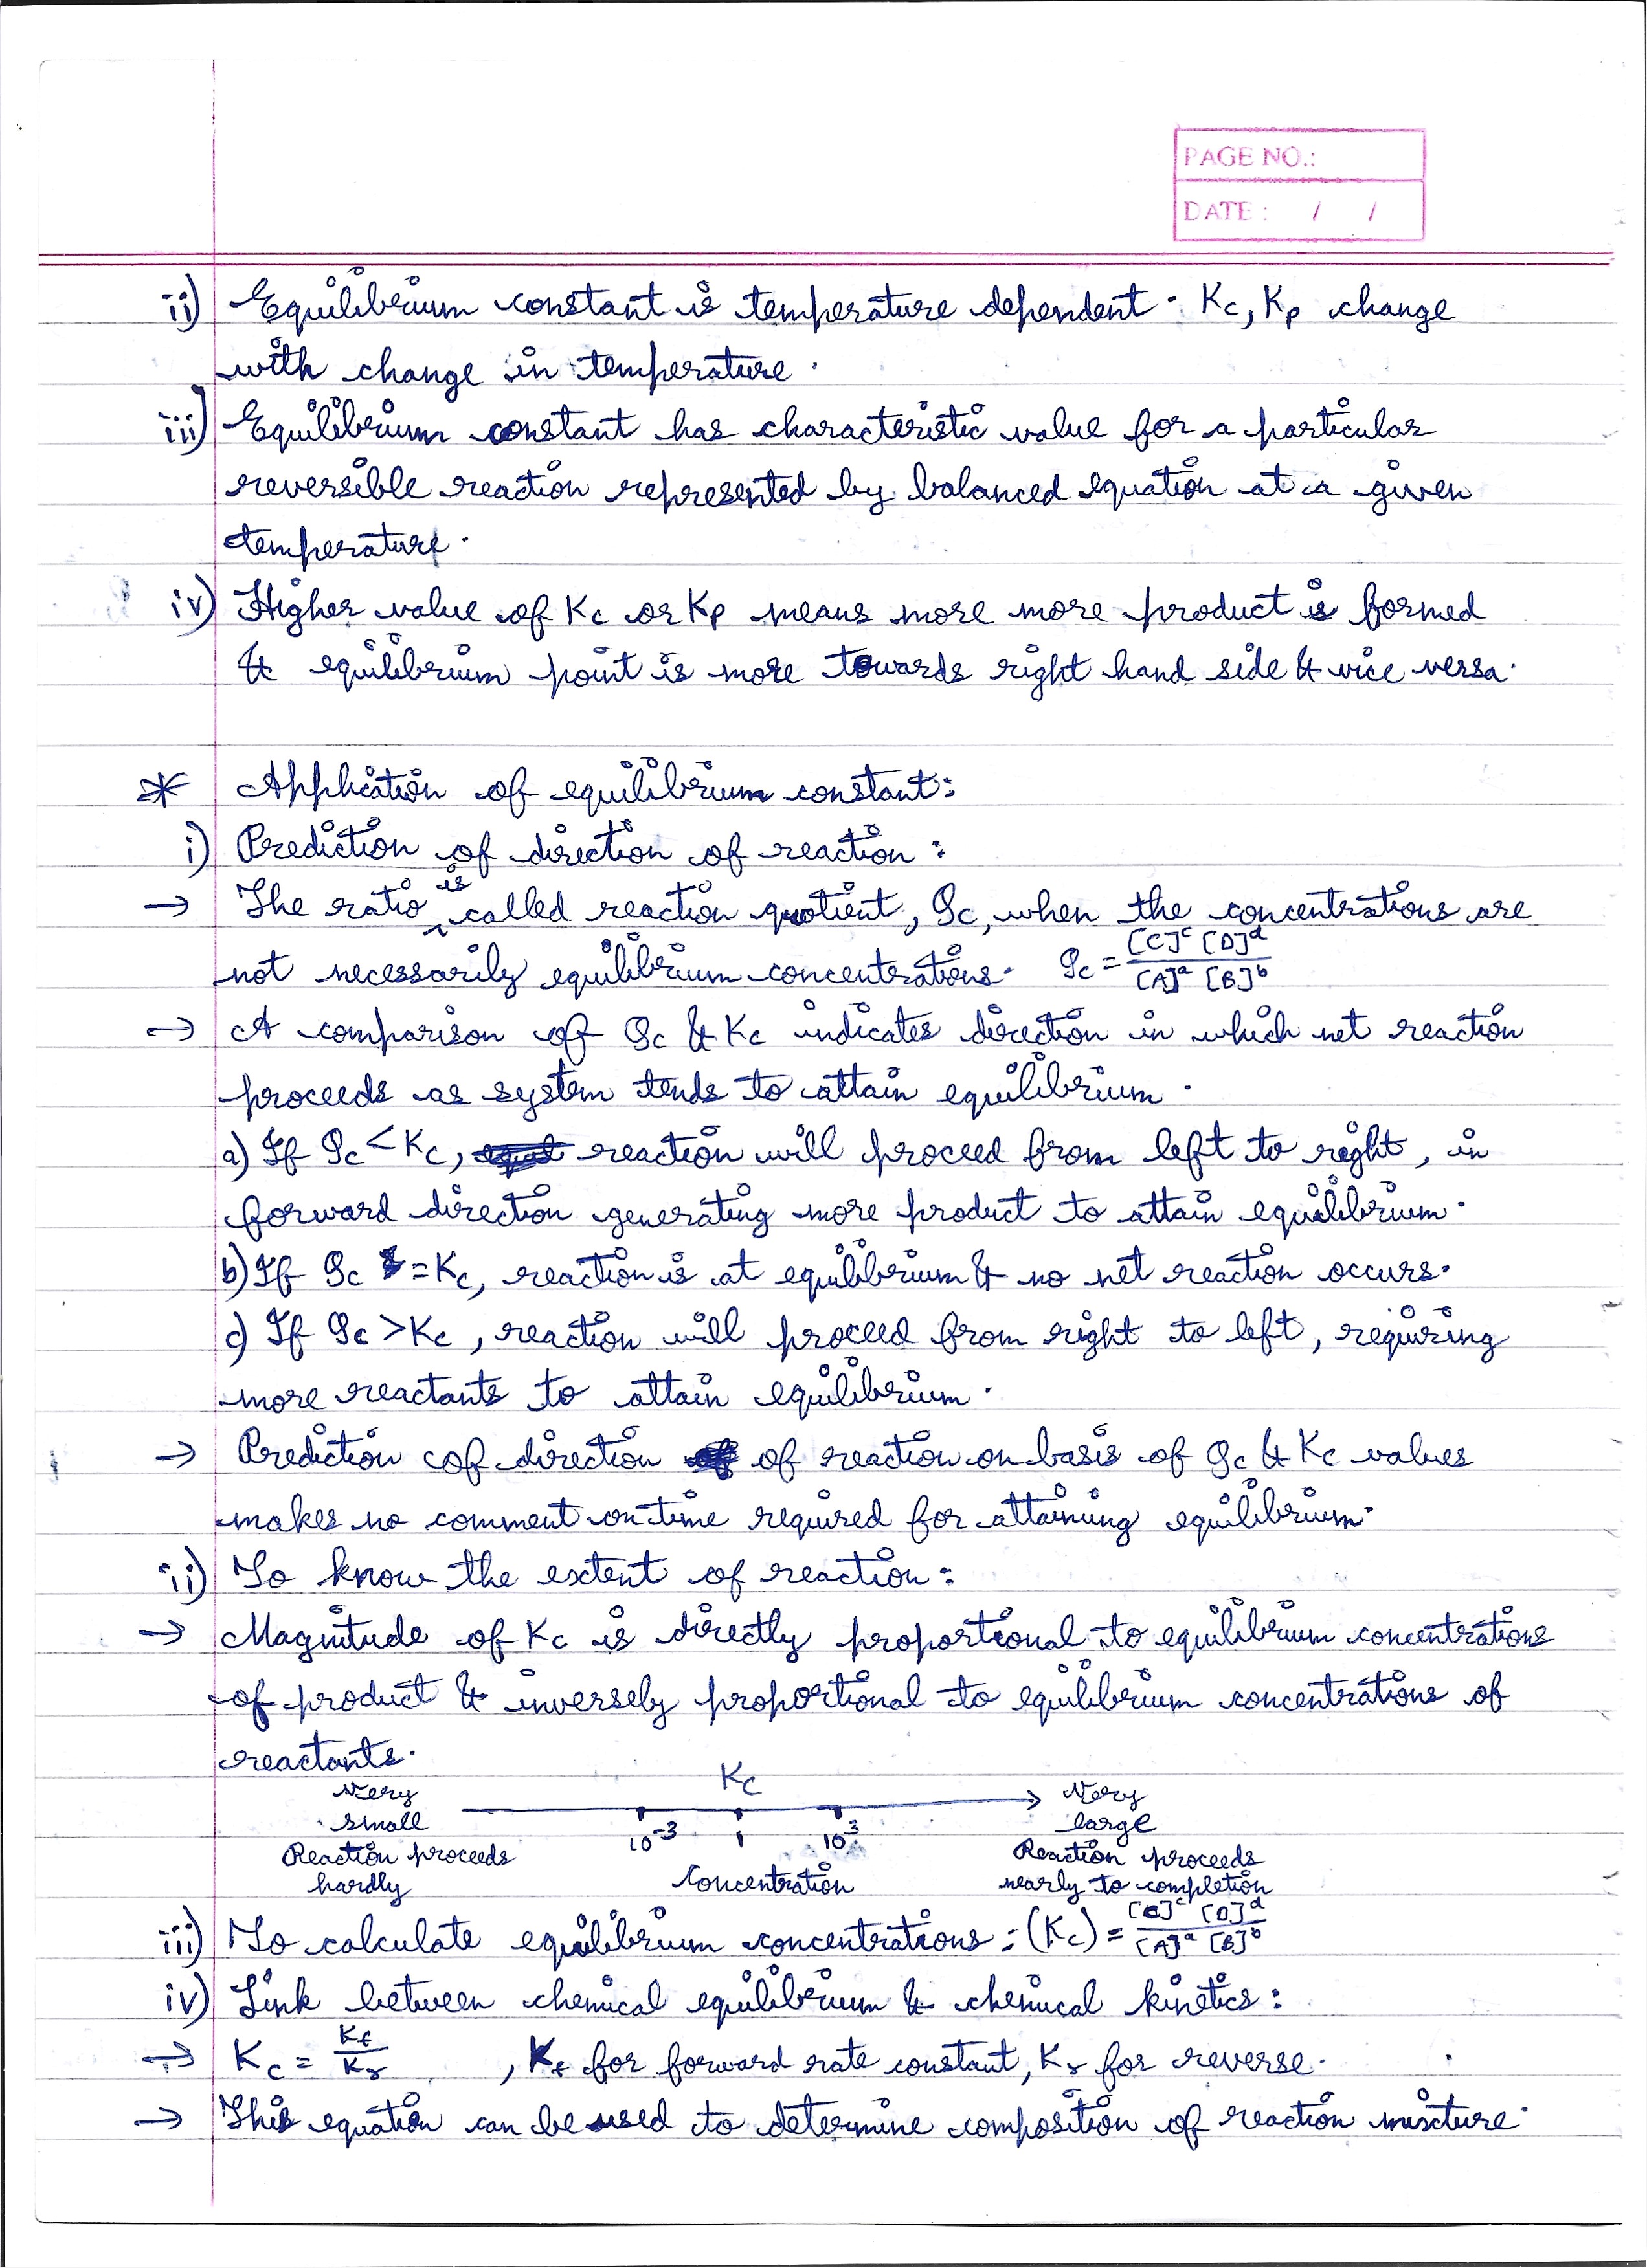 PAGE NO.:
DATE : / /
ii) Equilibrium constant is temperature dependent. Kc, Kp change
with change in temperature.
iii) Equilibrium constant has characteristic value for a particular
reversible reaction represented by balanced equation at a given
temperature.
iv) Higher value of Kc or Kp means more more product is formed
& equilibrium point is more towards right hand side & vice versa.
* Application of equilibrium constant:
i) Prediction of direction of reaction :
→ The ratio is called reaction quotient, Qc, when the concentrations are
not necessarily equilibrium concentrations. Qc = [C]^c [D]^d / [A]^a [B]^b
→ A comparison of Qc & Kc indicates direction in which net reaction
proceeds as system tends to attain equilibrium.
a) If Qc < Kc, reaction will proceed from left to right, in
forward direction generating more product to attain equilibrium.
b) If Qc = Kc, reaction is at equilibrium & no net reaction occurs.
c) If Qc > Kc, reaction will proceed from right to left, requiring
more reactants to attain equilibrium.
→ Prediction of direction of reaction on basis of Qc & Kc values
makes no comment on time required for attaining equilibrium.
ii) To know the extent of reaction :
→ Magnitude of Kc is directly proportional to equilibrium concentrations
of product & inversely proportional to equilibrium concentrations of
reactants.
Kc
Very small
10^-3 1 10^3
Very large
Reaction proceeds hardly
Concentration
Reaction proceeds nearly to completion
iii) To calculate equilibrium concentrations : (Kc) = [C]^c [D]^d / [A]^a [B]^b
iv) Link between chemical equilibrium & chemical kinetics :
→ Kc = Kf / Kr , Kf for forward rate constant, Kr for reverse.
→ This equation can be used to determine composition of reaction mixture.